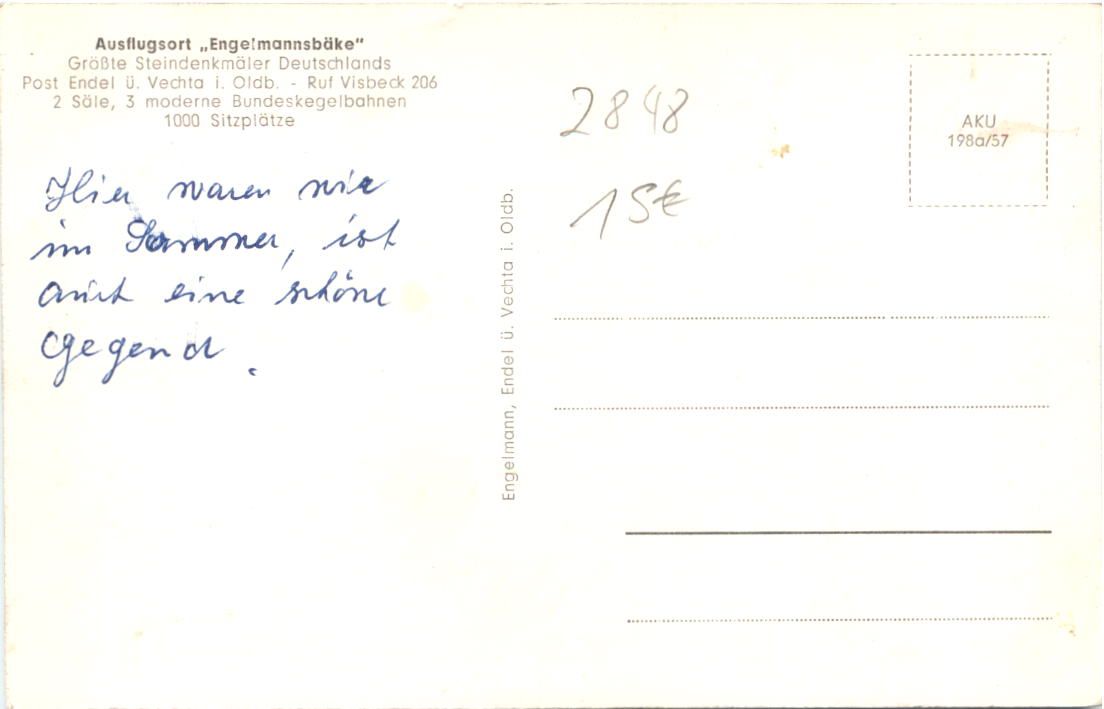 Ausflugsort „Engelmannsbäke"
Größte Steindenkmäler Deutschlands
Post Endel ü. Vechta i. Oldb. - Ruf Visbeck 206
2 Säle, 3 moderne Bundeskegelbahnen
1000 Sitzplätze
Hier waren wir
im Sommer, ist
auch eine schöne
Gegend.
Engelmann, Endel ü. Vechta i. Oldb.
2848
15€
AKU
198a/57